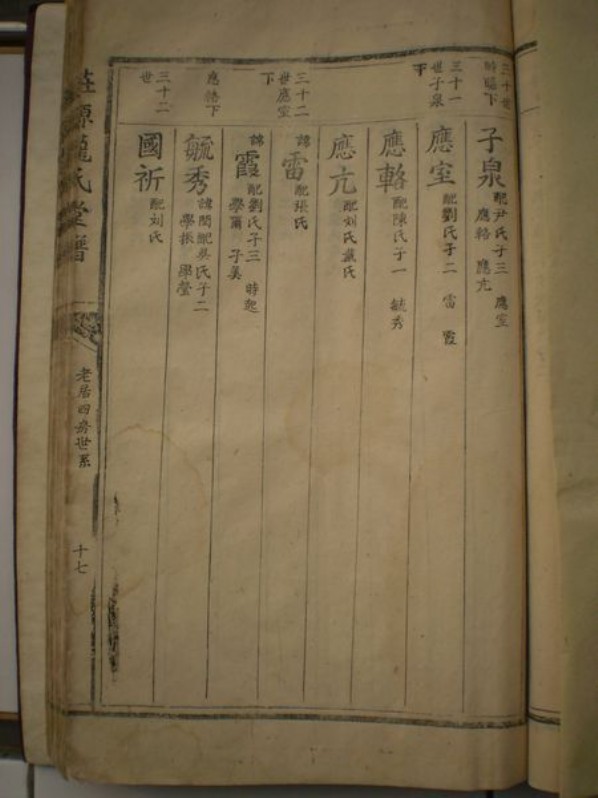 三十世
時臨下
子泉 配尹氏子三 應室
應輅 應亢
三十一
世子泉
下
應室 配劉氏子二 雷 霞
應輅 配陳氏子一 毓秀
應亢 配刘氏戴氏
三十二
世應室
下
諱
雷 配張氏
諱
霞 配劉氏子三 時起
學爾 子美
應輅下
毓秀 諱閏配吳氏子二
學振 學瑩
三十二
世
國祈 配刘氏
莊源龍氏堂譜
老居四房世系
十七